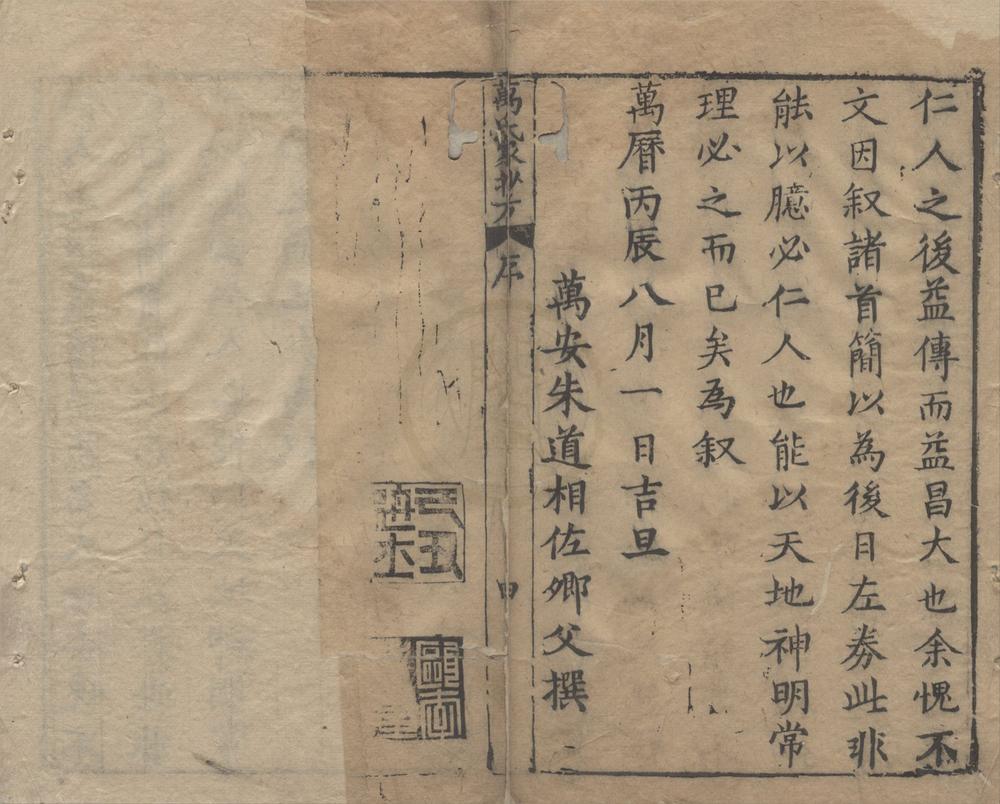 仁人之後益傳而益昌大也余愧不
文因叙諸首簡以為後日左券此非
能以臆必仁人也能以天地神明常
理必之而已矣為叙
萬曆丙辰八月一日吉旦
萬安朱道相佐卿父撰
萬氏家抄方 序 四
己丑進士